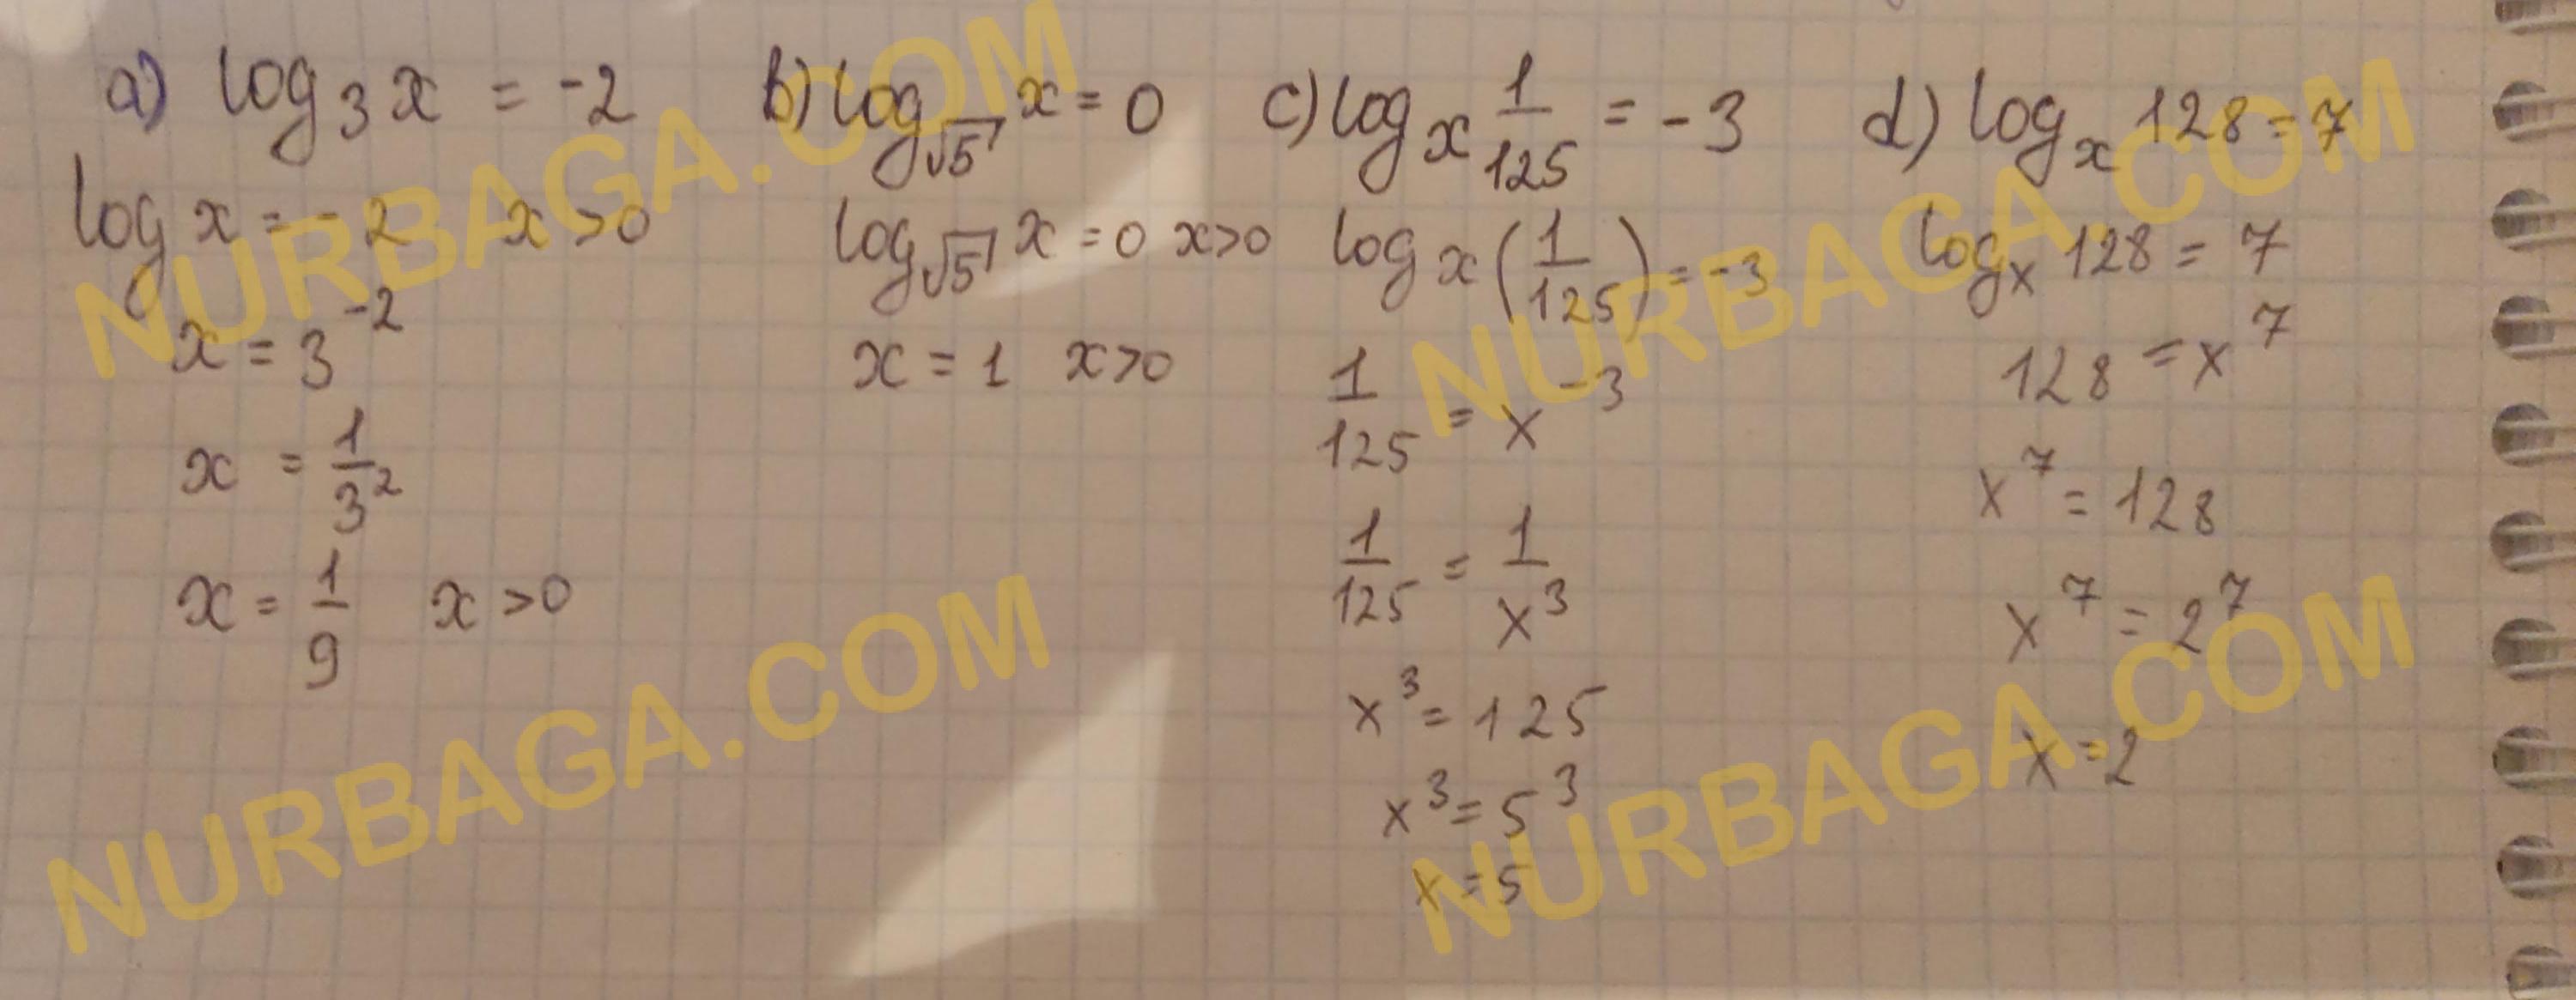 a) log₃ x = -2
log x = -2 x > 0
x = 3⁻²
x = 1/3²
x = 1/9 x > 0
b) log_√5 x = 0
log_√5 x = 0 x > 0
x = 1 x > 0
c) logₓ 1/125 = -3
log x (1/125) = -3
1/125 = x⁻³
1/125 = 1/x³
x³ = 125
x³ = 5³
x = 5
d) logₓ 128 = 7
logₓ 128 = 7
128 = x⁷
x⁷ = 128
x⁷ = 2⁷
x = 2
NURBAGA.COM
NURBAGA.COM
NURBAGA.COM
NURBAGA.COM